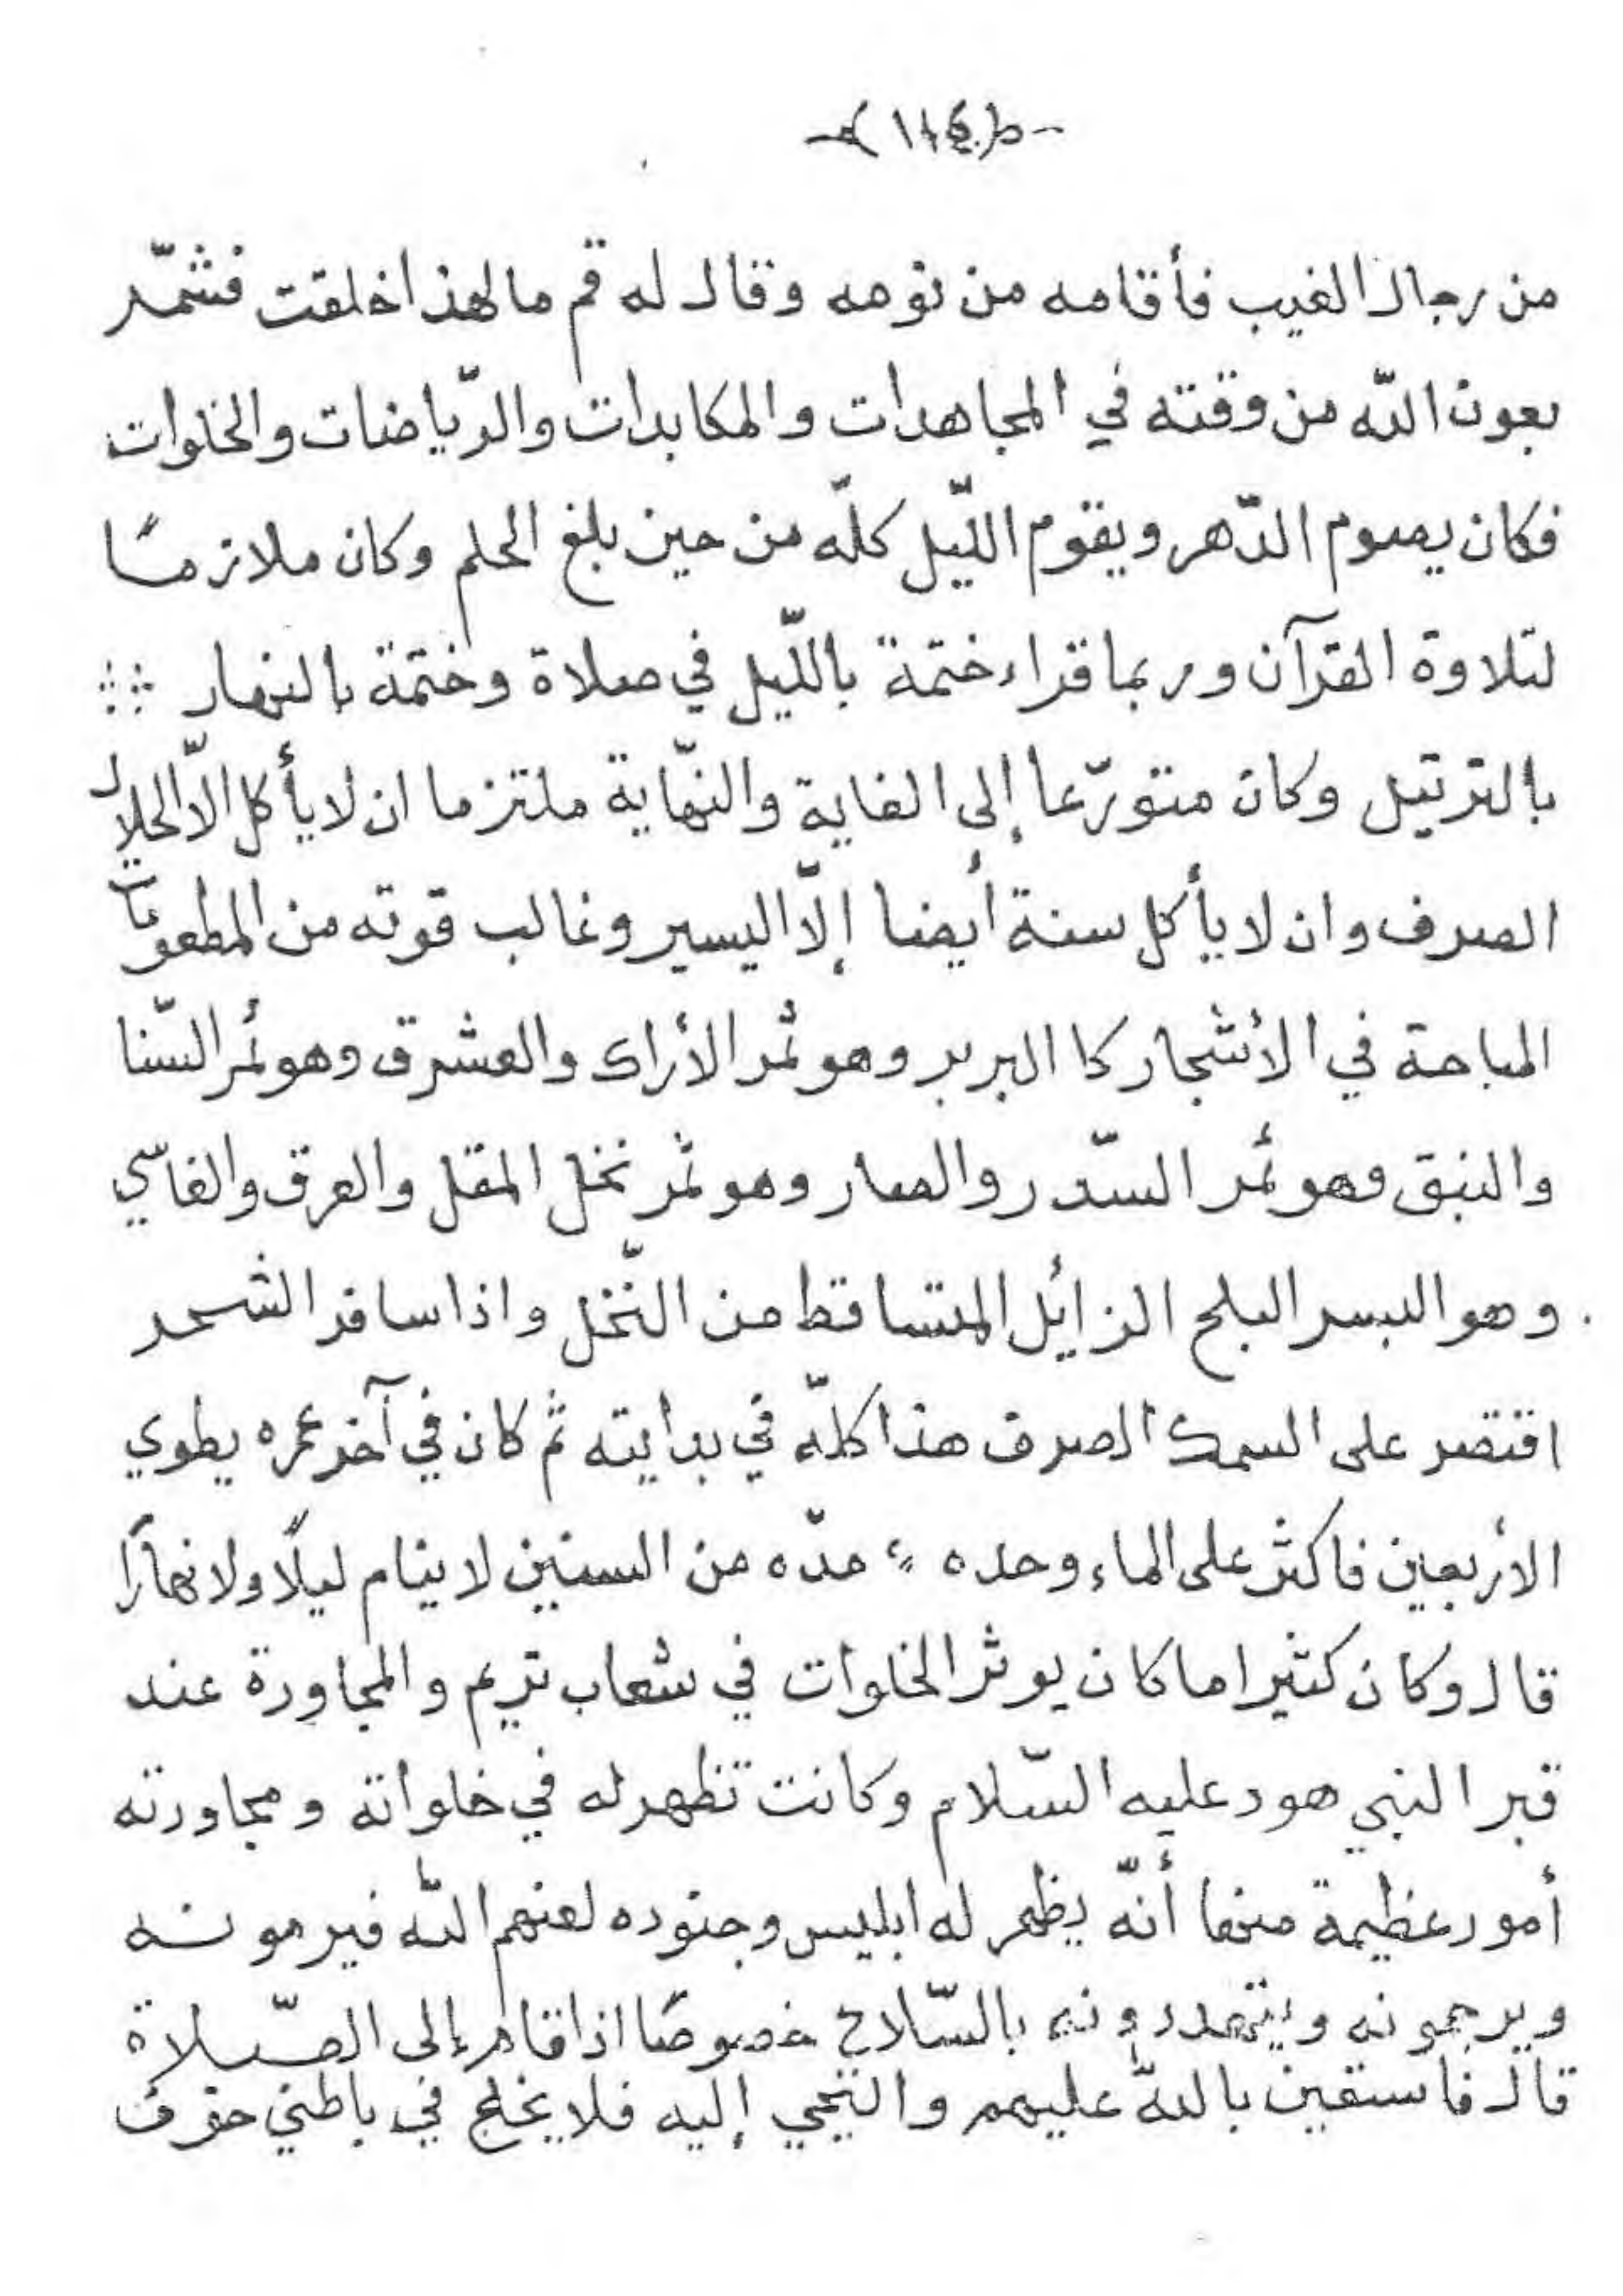 من رجال الغيب فأقامه من نومه وقال له قم ما لهذا خلقت فشمّر
بعون اللّه من وقته في المجاهدات والمكابدات والرّياضات والخلوات
فكان يصوم الدّهر ويقوم اللّيل كلّه من حين بلغ الحلم وكان ملازمًا
لتلاوة القرآن وربما قراء ختمة باللّيل في صلاة وختمة بالنهار
بالترتيل وكان متورّعا إلى الغاية والنّهاية ملتزما ان لا يأكل الاّ الحلال
الصرف وان لا يأكل سنة أيضا إلاّ اليسير وغالب قوته من المطعومات
المباحة في الأشجار كا البربر وهو ثمر الأراك والعشرق وهو ثمر السّنا
والنبق وهو ثمر السّدر والصار وهو ثمر نخل المقل والعرق والغاسّي
وهو البسر البلح الزائل المتساقط من النّخل واذا سافر الشحر
اقتصر على السمك الصرف هذا كلّه في بدايته ثم كان في آخر عمره يطوي
الأربعين فاكثر على الماء وحده مدّه من السنين لا ينام ليلًا ولا نهارًا
قال وكان كثيرا ما كان يوثر الخلوات في شعاب تريم والمجاورة عند
قبر النبي هود عليه السّلام وكانت تظهر له في خلواته ومجاورته
أمور عظيمة منها أنّه يظهر له ابليس وجنوده لعنهم اللّه فيرمونه
ويرجمونه ويتهددونه بالسّلاح خصوصًا اذا قام إلى الصّلاة
قال فاستعين باللّه عليهم والتجي إليه فلا يخلج في باطني خوف